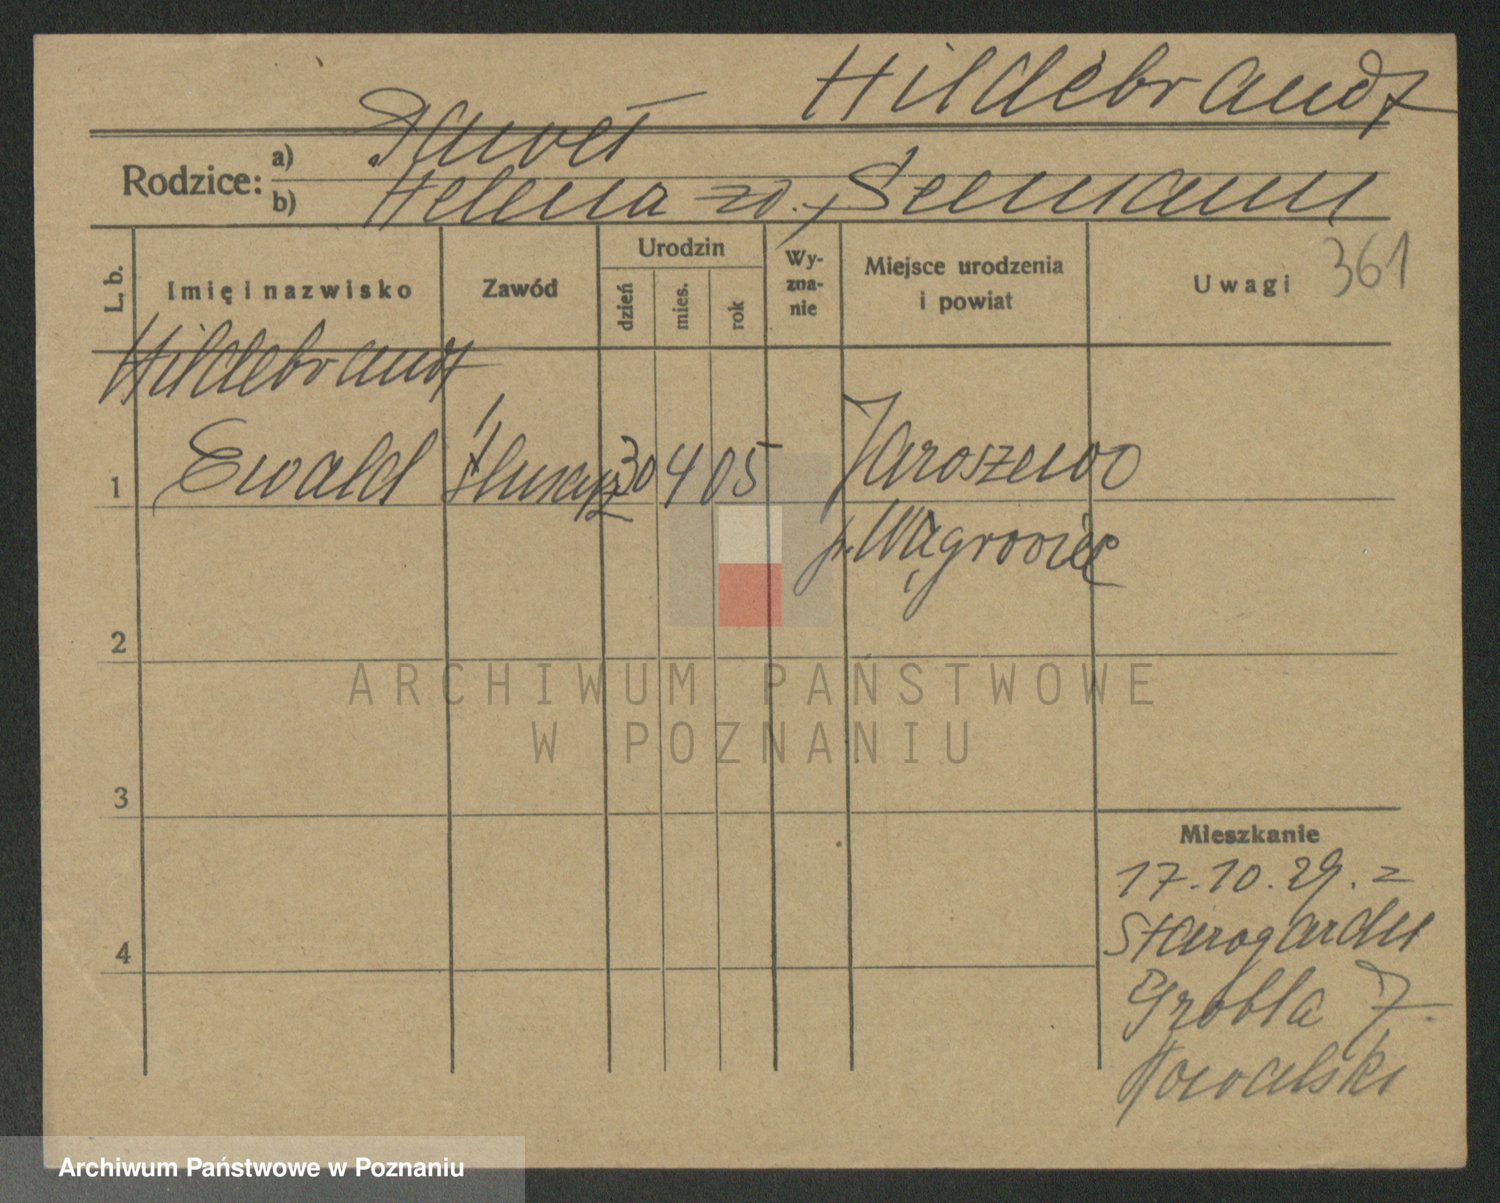 Hildebrandt
Rodzice:
a) Paweł
b) Helena zd. Seemann
L. b.
Imię i nazwisko
Zawód
Urodzin
dzień
mies.
rok
Wy-
zna-
nie
Miejsce urodzenia
i powiat
Uwagi 361
Hildebrandt
1 Ewald ślusarz 30 4 05 Jaroszewo
p. Wągrowiec
2
3
4
Mieszkanie
17.10.29. z
Starogardu
Grobla 7.
Kowalski
ARCHIWUM PAŃSTWOWE
W POZNANIU
Archiwum Państwowe w Poznaniu